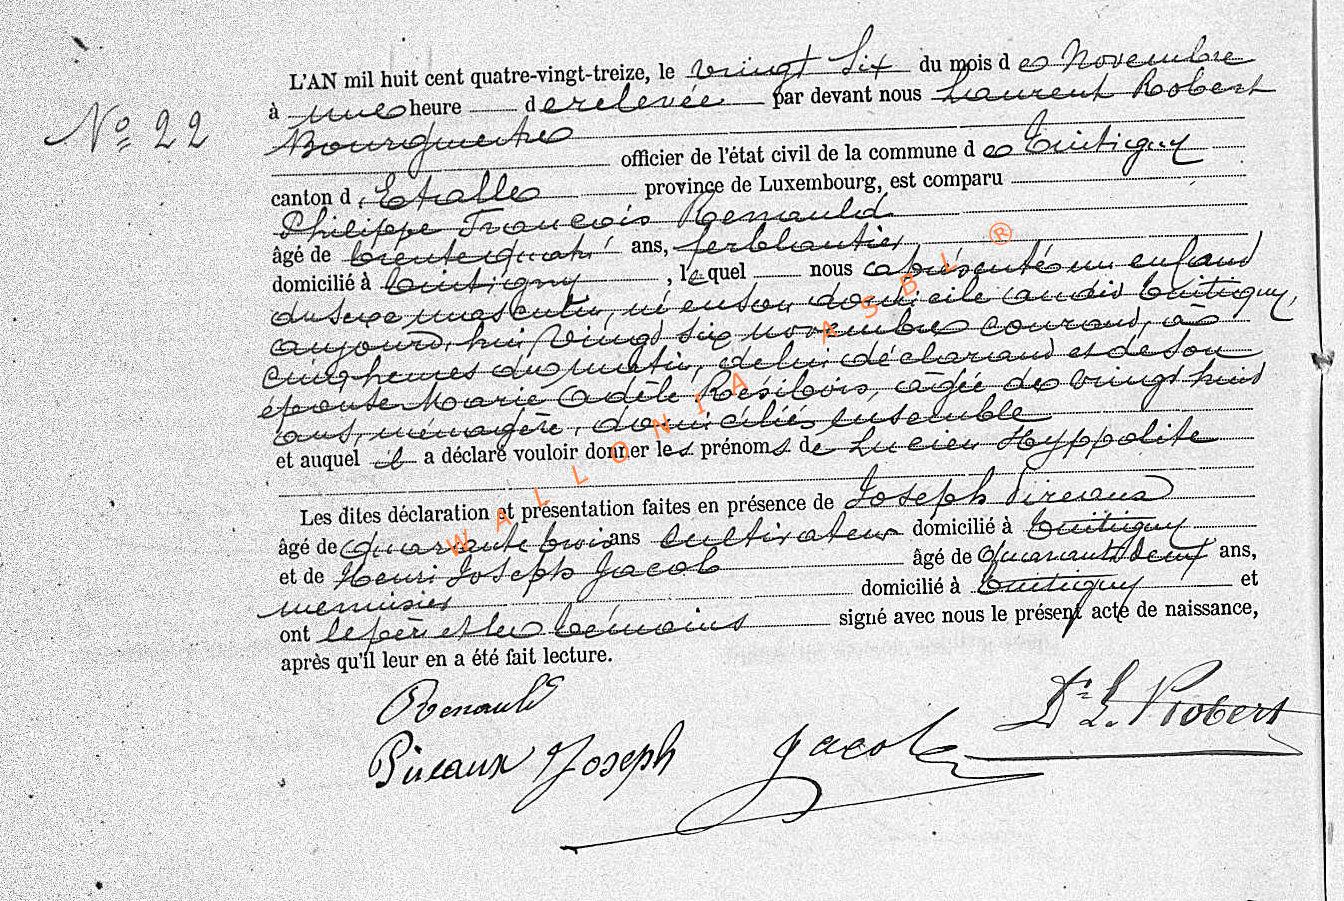 L'AN mil huit cent quatre-vingt-treize, le vingt six du mois de Novembre
N° 22
à une heure de relevée par devant nous Laurent Robert
Bourgmestre
officier de l'état civil de la commune de Tintigny
canton d'Etalle province de Luxembourg, est comparu
Philippe François Renauld
âgé de trente quatre ans, ferblantier,
domicilié à Tintigny, lequel nous a présenté un enfant
du sexe masculin, né en son domicile au dit Tintigny,
aujourd'hui vingt six novembre courant, à
cinq heures du matin, de lui déclarant et de son
épouse Marie Adèle Résibois, âgée de vingt huit
ans, ménagère, domiciliés ensemble
et auquel il a déclaré vouloir donner les prénoms de Lucien Hyppolite
Les dites déclaration et présentation faites en présence de Joseph Pireaux
âgé de quarante trois ans cultivateur domicilié à Tintigny
et de Henri Joseph Jacob âgé de quarante deux ans,
menuisier domicilié à Tintigny et
ont le père et les témoins signé avec nous le présent acte de naissance,
après qu'il leur en a été fait lecture.
Renauld
Dr L. Robert
Pireaux Joseph Jacob
WALLONIA ASBL ®